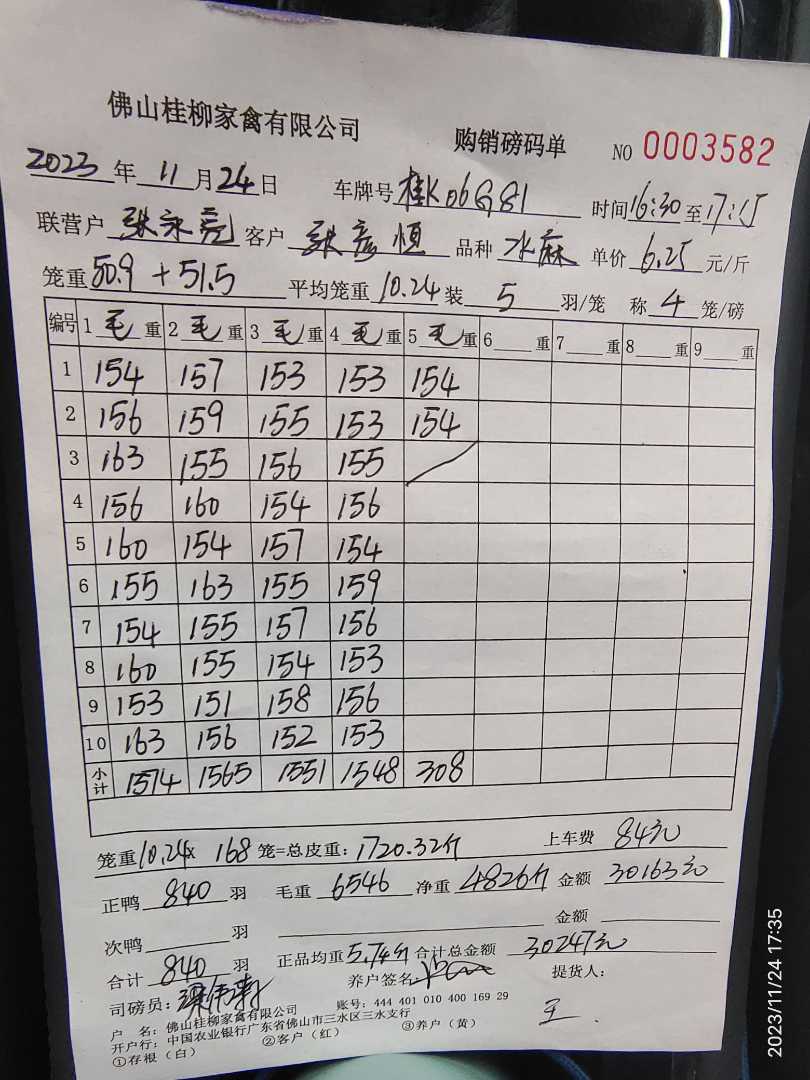 佛山桂柳家禽有限公司 购销磅码单 NO 0003582
2023 年 11 月 24 日 车牌号 桂K06G81 时间 16:30 至 17:15
联营户 张永亮 客户 张彦恒 品种 水麻 单价 6.25 元/斤
笼重 50.9+51.5 平均笼重 10.24 装 5 羽/笼 称 4 笼/磅
编号 1 毛 重 2 毛 重 3 毛 重 4 毛 重 5 毛 重 6 重 7 重 8 重 9 重
1 154 157 153 153 154
2 156 159 155 153 154
3 163 155 156 155
4 156 160 154 156
5 160 154 157 154
6 155 163 155 159
7 154 155 157 156
8 160 155 154 153
9 153 151 158 156
10 163 156 152 153
小计 1574 1565 1551 1548 308
笼重 10.24× 168 笼=总皮重: 1720.32斤 上车费 84元
正鸭 840 羽 毛重 6546 净重 4826斤 金额 30163元
次鸭 羽 金额
合计 840 羽 正品均重 5.74斤 合计总金额 30247元
司磅员: 养户签名 提货人:
户 名: 佛山桂柳家禽有限公司 账号: 444 401 010 400 169 29
开户行: 中国农业银行广东省佛山市三水区三水支行
①存根(白) ②客户(红) ③养户(黄)
王
2023/11/24 17:35